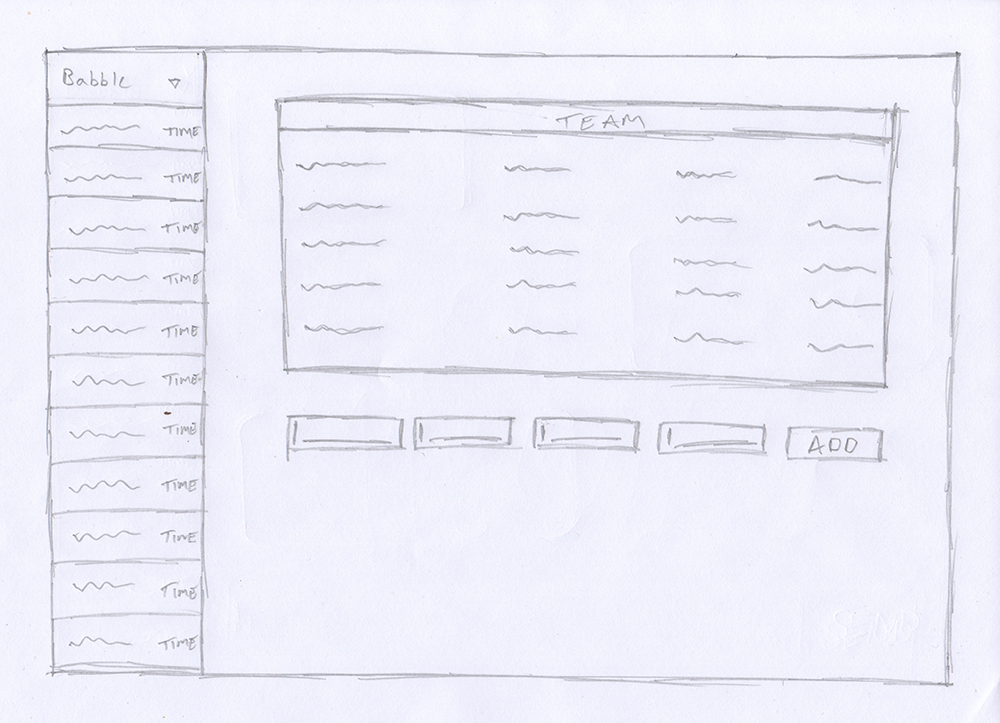 Babble
TIME
TIME
TIME
TIME
TIME
TIME
TIME
TIME
TIME
TIME
TIME
TEAM
ADD
SEND